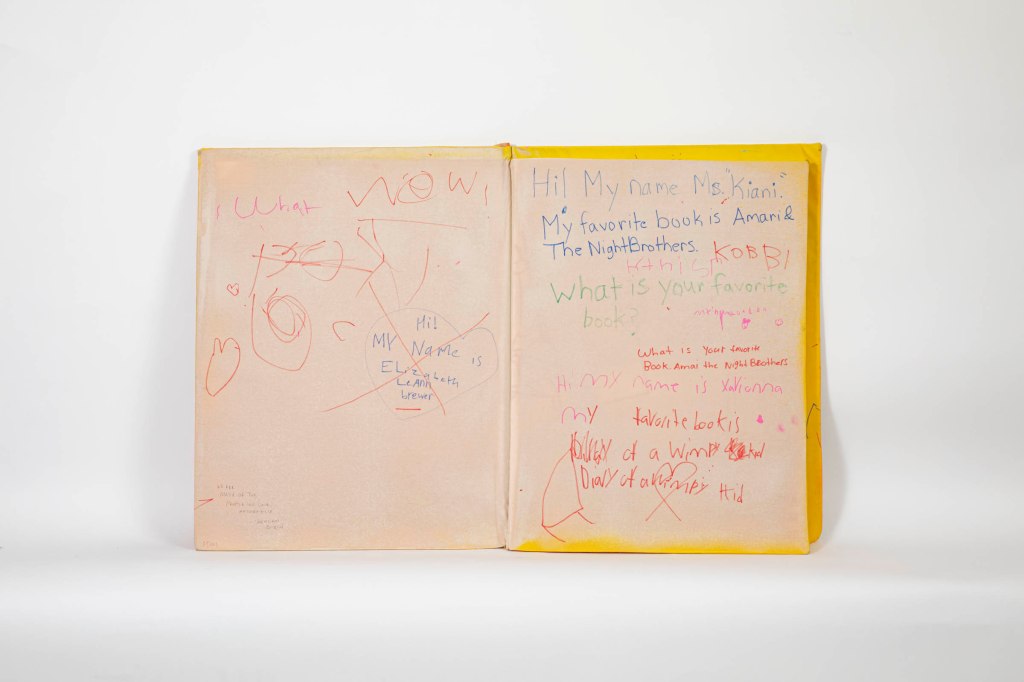 What
WOW!
Hi!
MY Name is
ELizabeth
LeAnn
brewer
Hi! My name Ms. "Kiani."
My favorite book is Amari &
The NightBrothers.
KOBBI
What is your favorite
book?
What is Your favorite
Book Amai the NightBrothers
Hi MY name is
MY favorite book is
Diary of a Wimpy Kid
Diary of a Wimpy Kid